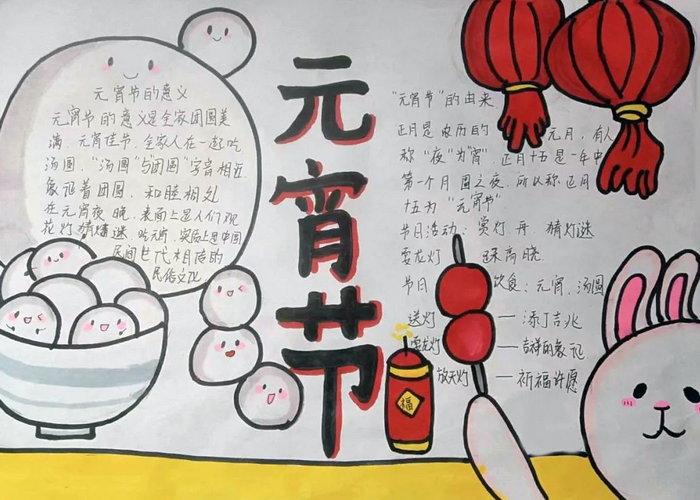 元宵节的意义
元宵节的意义是全家团圆美
满，元宵佳节，全家人在一起吃
汤圆，"汤圆"与"团圆"字音相近
象征着团圆，和睦相处
在元宵夜晚，表面上是人们观
花灯猜灯谜 吃元宵，实际上是中国
民间世代相传的
民俗文化
元宵节
"元宵节"的由来
正月是农历的 元月，古人
称"夜"为"宵"，正月十五是一年中
第一个月圆之夜，所以称正月
十五为"元宵节"
节日活动：赏灯 猜灯谜
耍龙灯 踩高跷
节日 饮食：元宵、汤圆
送灯 — 添丁吉兆
耍龙灯 — 吉祥的象征
放天灯 — 祈福许愿
福